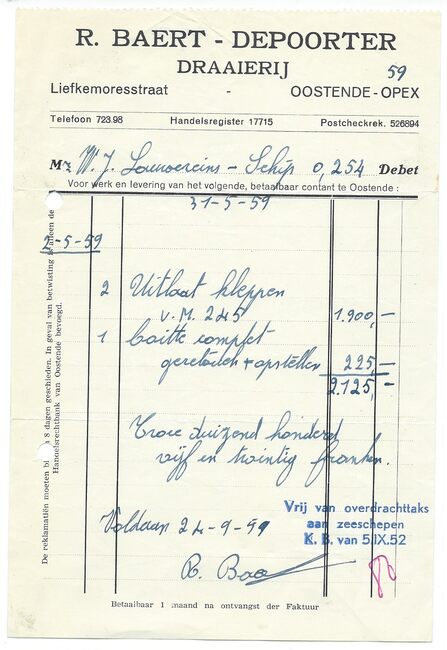 R. BAERT - DEPOORTER
DRAAIERIJ
59
Liefkemoresstraat - OOSTENDE - OPEX
Telefoon 723.98 Handelsregister 17715 Postcheckrek. 526894
Mr W. J. Louwereins - Schip O, 254 Debet
Voor werk en levering van het volgende, betaalbaar contant te Oostende :
31-5-59
2-5-59
2 Uitlaat kleppen
V. M. 245 1.900,-
1 Coitte compleet
gereloden + opstellen 225,-
2.125,-
Twee duizend honderd
vijf en twintig franken.
Voldaan 24-9-59
R. Bae
Vrij van overdrachttaks
aan zeeschepen
K. B. van 5.IX.52
De reklamatiën moeten 8 dagen geschieden. In geval van betwisting is alleen de
Handelsrechtbank van Oostende bevoegd.
Betaalbaar 1 maand na ontvangst der Faktuur